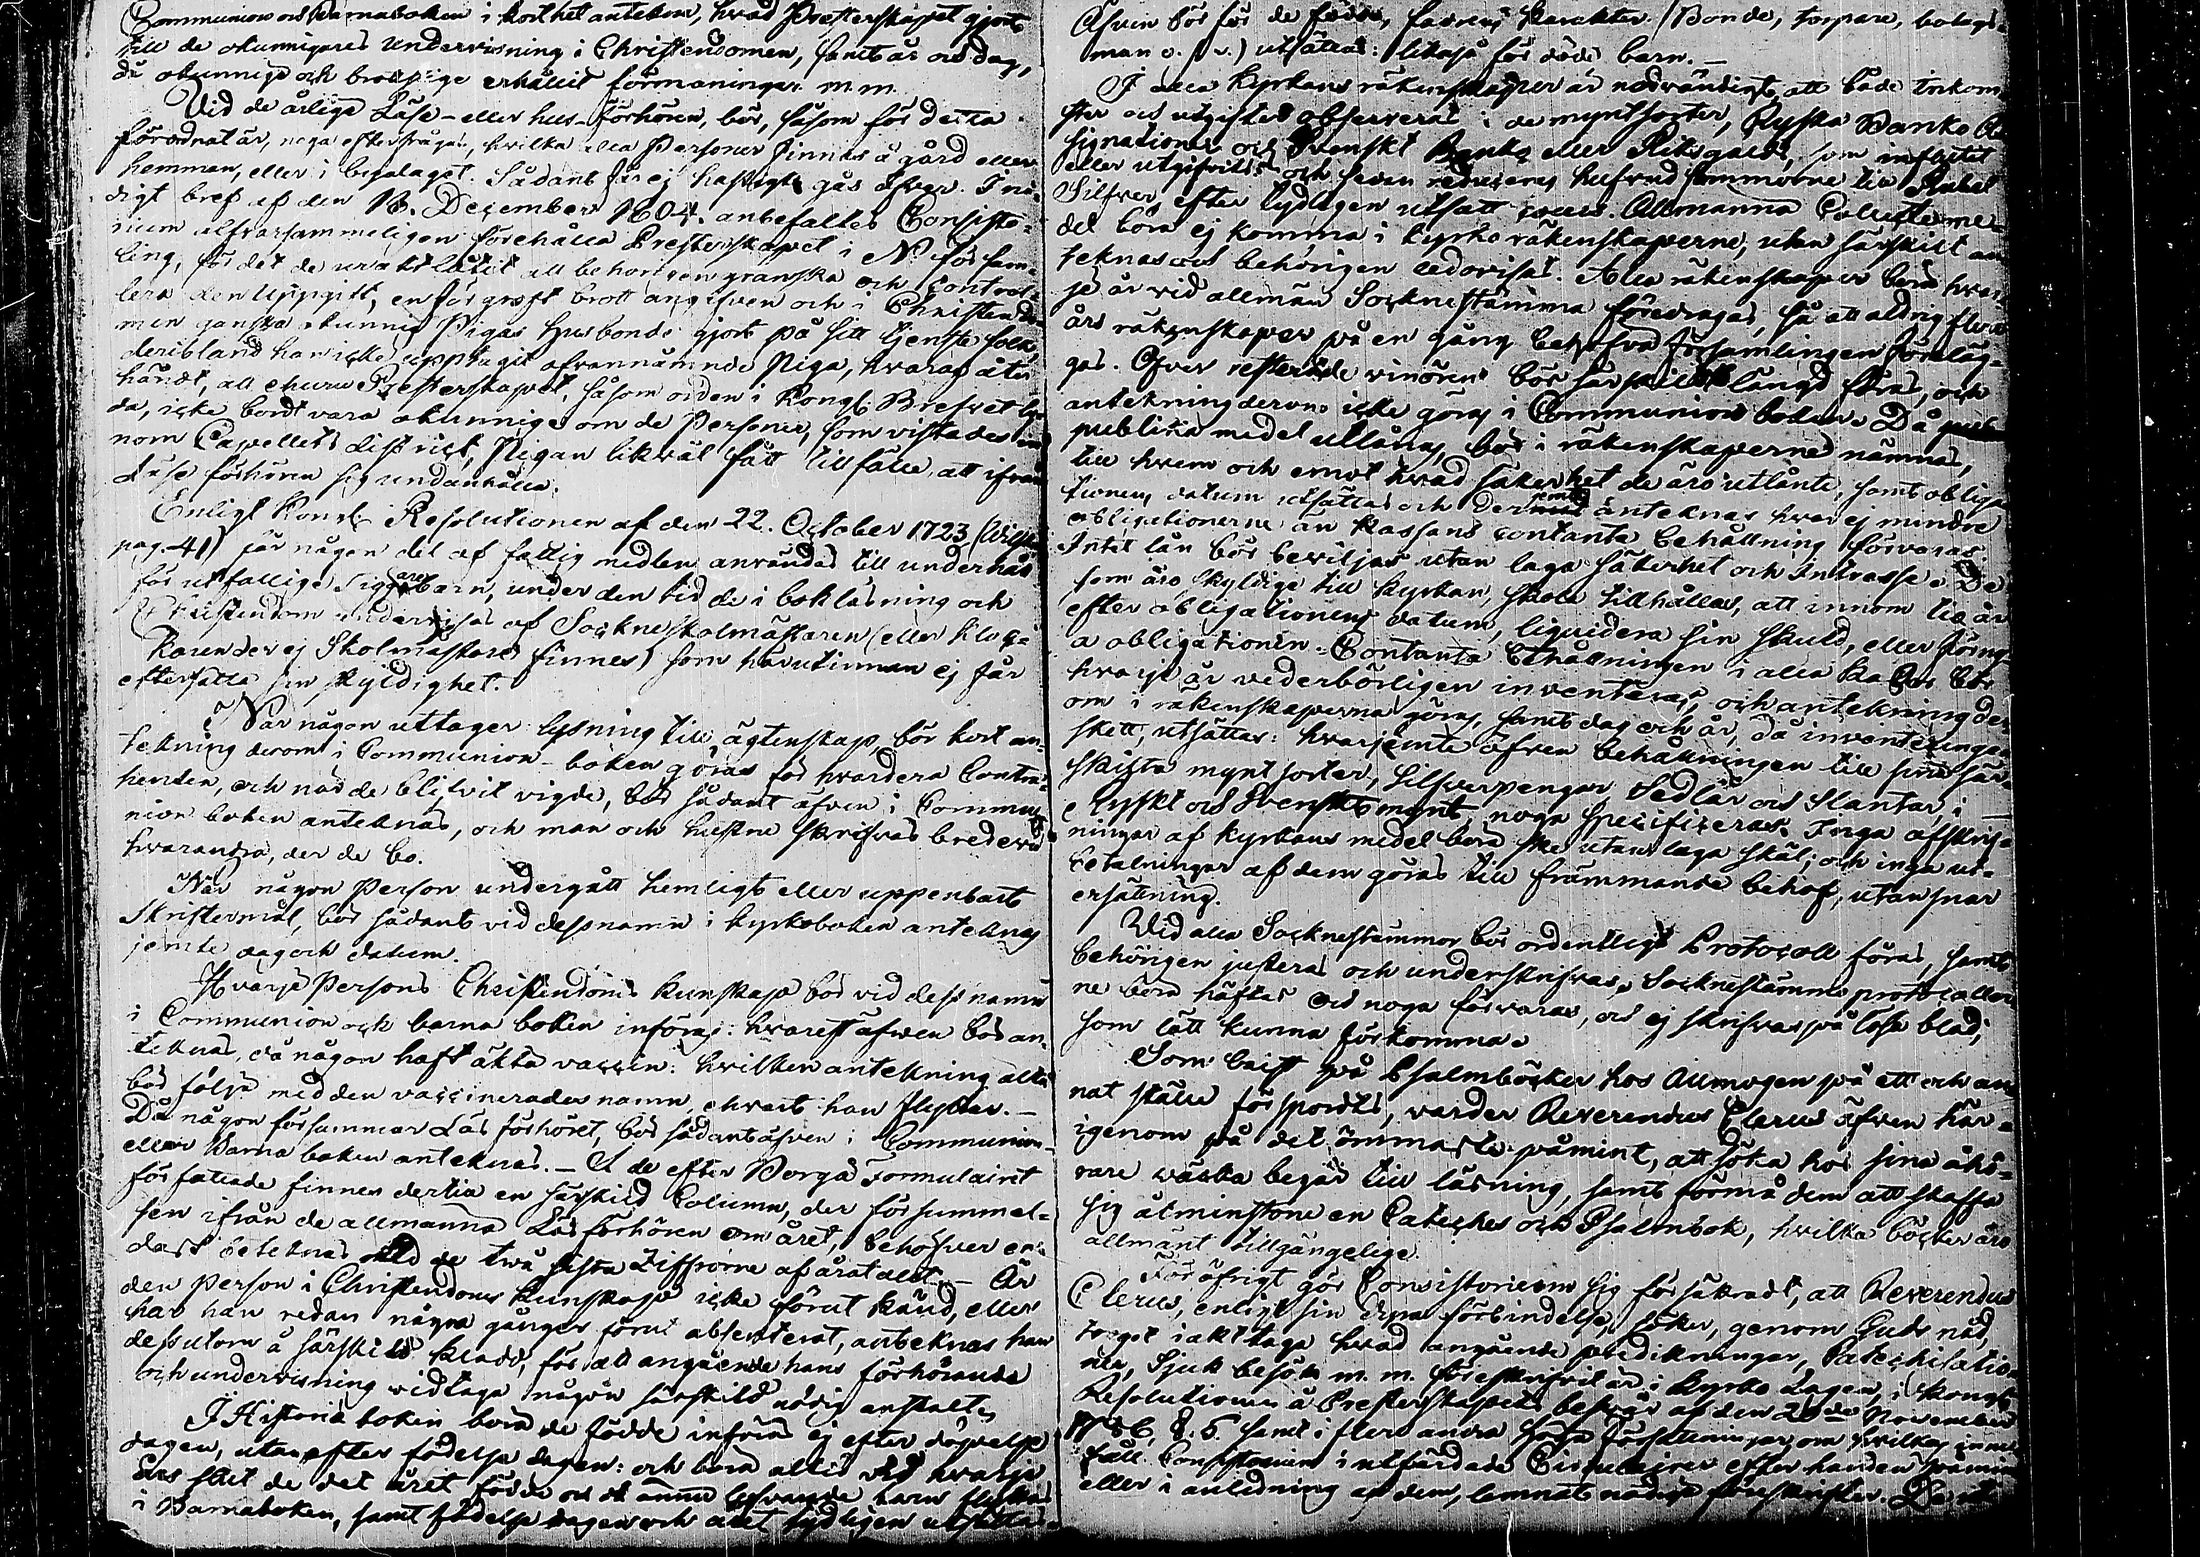 Communion och Barnaboken i korthet antekna, hvad Presterskapet gjort
till de okunnigares undervisning i Christendomen, samt år och dag,
då okunnige och brottslige erhållit förmaningar m.m.
Vid de årlige Läse- eller hus-förhören, bör, såsom för detta
förordnat är, noga efterfrågas, hvilka alla Personer finnas å gård eller
hemman, eller i befalaget. Sådant får ej hastigt gås öfver. I nå-
digt bref af den 18. December 1804. anbefaltes Consisto-
rium alfvarsammeligen förehålla Presterskapet i N. försam-
ling, för det de uraktlåtit att behörigen granska och control-
lera den uppgift, en för groft brott angifven och i Christendo-
men ganska okunnig Pigas husbonde gjort på sitt tjenstefolk,
deribland han icke upptagit ofvannämnde Piga, hvaraf åter
händt, att ehuru Presterskapet, såsom orden i Kongl. Brefvet ly-
da, icke bordt vara okunnige om de Personer, som vistades in-
nom Capellets district, Pigan likväl fått tillfälle att ifrån
Läse förhören sig undanhålla.
Enligt Kongl. Resolutionen af den 22. October 1723
pag. 41) får någon del af fattig medlen användas till underhåll
för utfattige Tiggare barn, under den tid de i bokläsning och
Christendom undervisas af Sockneskolmästaren (eller Kloc-
karen der ej Skolmästare finnes) som härutinnan ej får
eftersätta sin skyldighet.
När någon uttager lysning till ägtenskap, bör kort an-
tekning derom i Communion-boken göras för hvardera Contra-
henten, och när de blifvit vigde, bör sådant äfven i Commu-
nion boken anteknas, och man och hustru skrifvas bredevid
hvarandra, der de bo.
När någon Person undergått hemligt eller uppenbart
Skriftermål, bör sådant vid dess namn i kyrkoboken anteknas
jemte dag och datum.
Hvarje Persons Christendoms kunskap bör vid dess namn
i Communion och barna boken införas: hvarest äfven bör an-
teknas, då någon haft äkta vaccin: hvilken antekning alltid
bör följa med den vaccinerades namn, ehvart han flyttar. –
Då någon försummar Läsförhöret, bör sådant äfven i Communion-
eller Barna boken anteknas. – I de efter Borgå Formulairet
författade finnes dertill en särskild Column, der försummel-
sen ifrån de allmänna Läsförhören om året, behöfver en-
dast beteknas med de två sista Ziffrorne af åratalet. – Är
den person i Christendoms kunskap icke förut känd, eller
har han redan några gånger förut absenterat, anteknas han
dessutom å särskilt blad, för att angående hans förhörande
och undervisning vidtaga någon särskild nödig anstalt.
I Historie boken böra de födde införas ej efter döpelse
dagen, utan efter födelse dagen: och böra altid vid hvarje
års slut de det året födde och då ännu lefvande barn flyttas
i Barnaboken, samt födelse dagen och året tydligen utsättas.
Äfven bör för de födde, fadrens karakter (Bonde, torpare, bolags-
man o. s. v.) utsättas: likaså för döde barn. –
I alla kyrkans räkenskaper är nödvändigt, att både inkom-
ster och utgifter observeras i de myntsorter, Ryska Banko As-
signationer och Svenskt Banko eller Riksgälds, som influtit
eller utgifvits och sedan reduceras hufvud summorne till Rubel
Silfver, efter tydligen utsatt cours. Allmänna Collecte me-
del böra ej komma i kyrko räkenskaperne, utan särskilt an-
teknas och behörigen redovisas. Alla räkenskaper böra hvar-
je år vid allmän Socknestämma föredragas, så att aldrig flera
års räkenskaper på en gång behöfva församlingen föreläg-
gas. Öfver resterade vinören bör särskild längd föras, och
antekning derom icke göras i Communion boken. Då
publika medel utlånas, bör i räkenskaperne nämnas,
till hvem och emot hvad säkerhet de äro utlånte, samt obliga-
tionens datum utsättas och derjemte anteknas hvar ej mindre
obligationerne än kassans contanta behållning förvaras.
Intet lån bör beviljas utan laga säkerhet och Intresse. De
som äro skyldige till kyrkan, skola tillhållas, att innom tio år
efter obligationens datum, liquidera sin skuld, eller förny-
a obligationen. Contanta behållningen i alla Kassor bör
hvarje år vederbörligen inventeras, och antekning der-
om i räkenskaperna göras, samt dag och år, då inventeringen
skett, utsättas: hvarjemte äfven behållningen till sina sär-
skilta myntsorter, Silfverpengar Sedlar och slantar, i
Ryskt och Svenskt mynt, noga specificeras. Inga afskrif-
ningar af kyrkans medel böra ske utan laga skäl; och inga ut-
betalningar af dem göras till främmande behof, utan snar
ersättning.
Vid alla Socknestämmor bör ordentligt Protocoll föras, samt
behörigen justeras och underskrifvas. Socknestämmo protocoller-
ne böra häftas och noga förvaras, och ej skrifvas på lösa blad,
som lätt kunna förkomma.
Som brist på Psalmböcker hos Allmogen på ett och an-
nat ställe försports, varder Reverendus Clerus äfven här-
igenom på det ömmaste påmint, att söka hos sina åhö-
rare väcka begär till läsning, samt förmå dem att skaffa
sig åtminstone en Cateches och Psalmbok, hvilka böcker äro
allmänt tillgängelige.
För öfrigt gör Consistorium sig försäkradt, att Reverendus
Clerus, enligt sin dyra förbindelse, söker, genom Guds nåd,
troget iakttaga hvad angående predikningar, Catechisatio-
ner, Sjuk besök m. m. föreskrifvit är i Kyrko Lagen, i Kongl.
Resolutionen å Presterskapets besvär af den 26de November
1786, §. 5. samt i flera andra höga Författningar, om hvilkas inne-
håll Consistorium i utfärdade Circulairer efter handen påmint
eller i anledning af dem, lemnat nödiga föreskrifter.